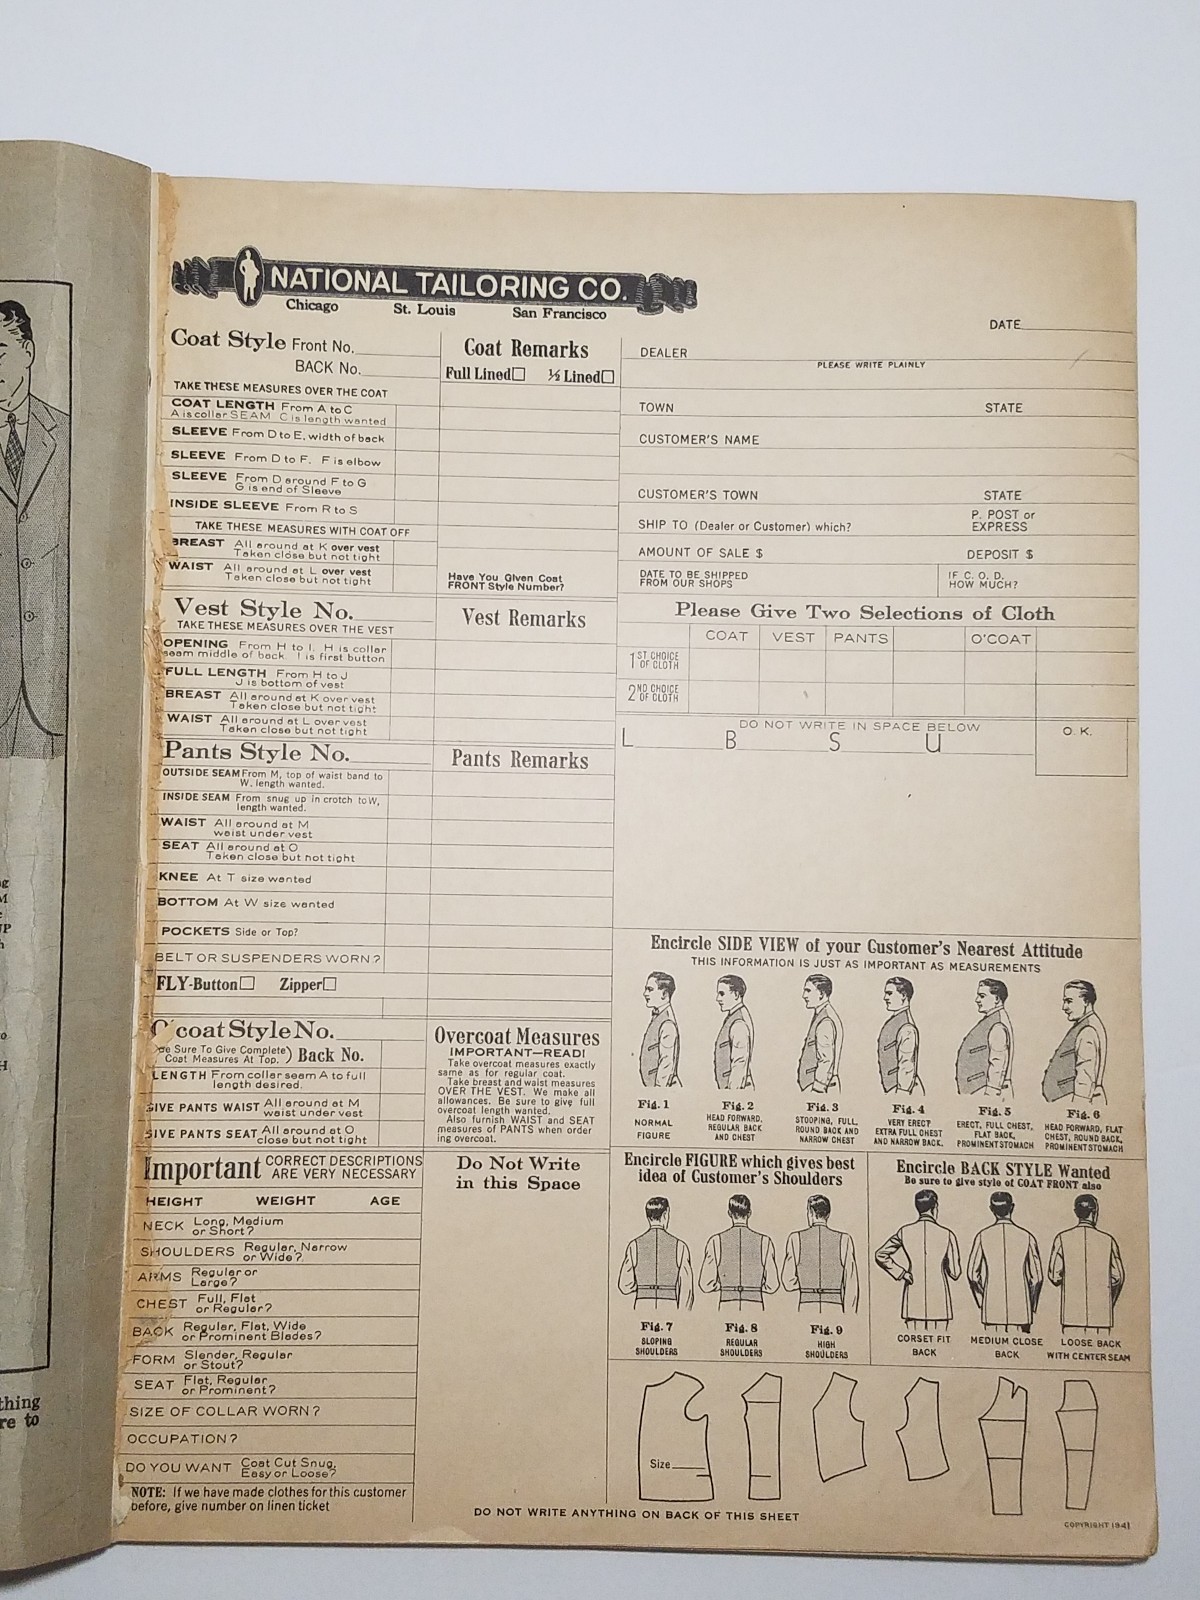 NATIONAL TAILORING CO.
Chicago St. Louis San Francisco
DATE
Coat Style Front No.
BACK No.
TAKE THESE MEASURES OVER THE COAT
COAT LENGTH From A to C
A is collar SEAM C is length wanted
SLEEVE From D to E, width of back
SLEEVE From D to F. F is elbow
SLEEVE From D around F to G
G is end of Sleeve
INSIDE SLEEVE From R to S
TAKE THESE MEASURES WITH COAT OFF
BREAST All around at K over vest
Taken close but not tight
WAIST All around at L over vest
Taken close but not tight
Coat Remarks
Full Lined ½ Lined
Have You Given Coat
FRONT Style Number?
DEALER
PLEASE WRITE PLAINLY
TOWN STATE
CUSTOMER'S NAME
CUSTOMER'S TOWN STATE
SHIP TO (Dealer or Customer) which? P. POST or
EXPRESS
AMOUNT OF SALE $ DEPOSIT $
DATE TO BE SHIPPED
FROM OUR SHOPS
IF C. O. D.
HOW MUCH?
Vest Style No.
TAKE THESE MEASURES OVER THE VEST
OPENING From H to I. H is collar
seam middle of back. I is first button
FULL LENGTH From H to J
J is bottom of vest
BREAST All around at K over vest
Taken close but not tight
WAIST All around at L over vest
Taken close but not tight
Vest Remarks
Please Give Two Selections of Cloth
COAT VEST PANTS O'COAT
1ST CHOICE
OF CLOTH
2ND CHOICE
OF CLOTH
DO NOT WRITE IN SPACE BELOW
L B S U
O. K.
Pants Style No.
OUTSIDE SEAM From M, top of waist band to
W. length wanted.
INSIDE SEAM From snug up in crotch to W,
length wanted.
WAIST All around at M
waist under vest
SEAT All around at O
Taken close but not tight
KNEE At T size wanted
BOTTOM At W size wanted
POCKETS Side or Top?
BELT OR SUSPENDERS WORN?
FLY-Button Zipper
Pants Remarks
O'coat Style No.
Be Sure To Give Complete
Coat Measures At Top.) Back No.
LENGTH From collar seam A to full
length desired.
GIVE PANTS WAIST All around at M
waist under vest
GIVE PANTS SEAT All around at O
close but not tight
Overcoat Measures
IMPORTANT—READ!
Take overcoat measures exactly
same as for regular coat.
Take breast and waist measures
OVER THE VEST. We make all
allowances. Be sure to give full
overcoat length wanted.
Also furnish WAIST and SEAT
measures of PANTS when order
ing overcoat.
Encircle SIDE VIEW of your Customer's Nearest Attitude
THIS INFORMATION IS JUST AS IMPORTANT AS MEASUREMENTS
Fig. 1
NORMAL
FIGURE
Fig. 2
HEAD FORWARD,
REGULAR BACK
AND CHEST
Fig. 3
STOOPING, FULL,
ROUND BACK AND
NARROW CHEST
Fig. 4
VERY ERECT
EXTRA FULL CHEST
AND NARROW BACK.
Fig. 5
ERECT, FULL CHEST,
FLAT BACK,
PROMINENT STOMACH
Fig. 6
HEAD FORWARD, FLAT
CHEST, ROUND BACK,
PROMINENT STOMACH
Important CORRECT DESCRIPTIONS
ARE VERY NECESSARY
HEIGHT WEIGHT AGE
NECK Long, Medium
or Short?
SHOULDERS Regular, Narrow
or Wide?
ARMS Regular or
Large?
CHEST Full, Flat
or Regular?
BACK Regular, Flat, Wide
or Prominent Blades?
FORM Slender, Regular
or Stout?
SEAT Flat, Regular
or Prominent?
SIZE OF COLLAR WORN?
OCCUPATION?
DO YOU WANT Coat Cut Snug,
Easy or Loose?
NOTE: If we have made clothes for this customer
before, give number on linen ticket
Do Not Write
in this Space
Encircle FIGURE which gives best
idea of Customer's Shoulders
Fig. 7
SLOPING
SHOULDERS
Fig. 8
REGULAR
SHOULDERS
Fig. 9
HIGH
SHOULDERS
Encircle BACK STYLE Wanted
Be sure to give style of COAT FRONT also
CORSET FIT
BACK
MEDIUM CLOSE
BACK
LOOSE BACK
WITH CENTER SEAM
Size
DO NOT WRITE ANYTHING ON BACK OF THIS SHEET
COPYRIGHT 1941
thing
re to